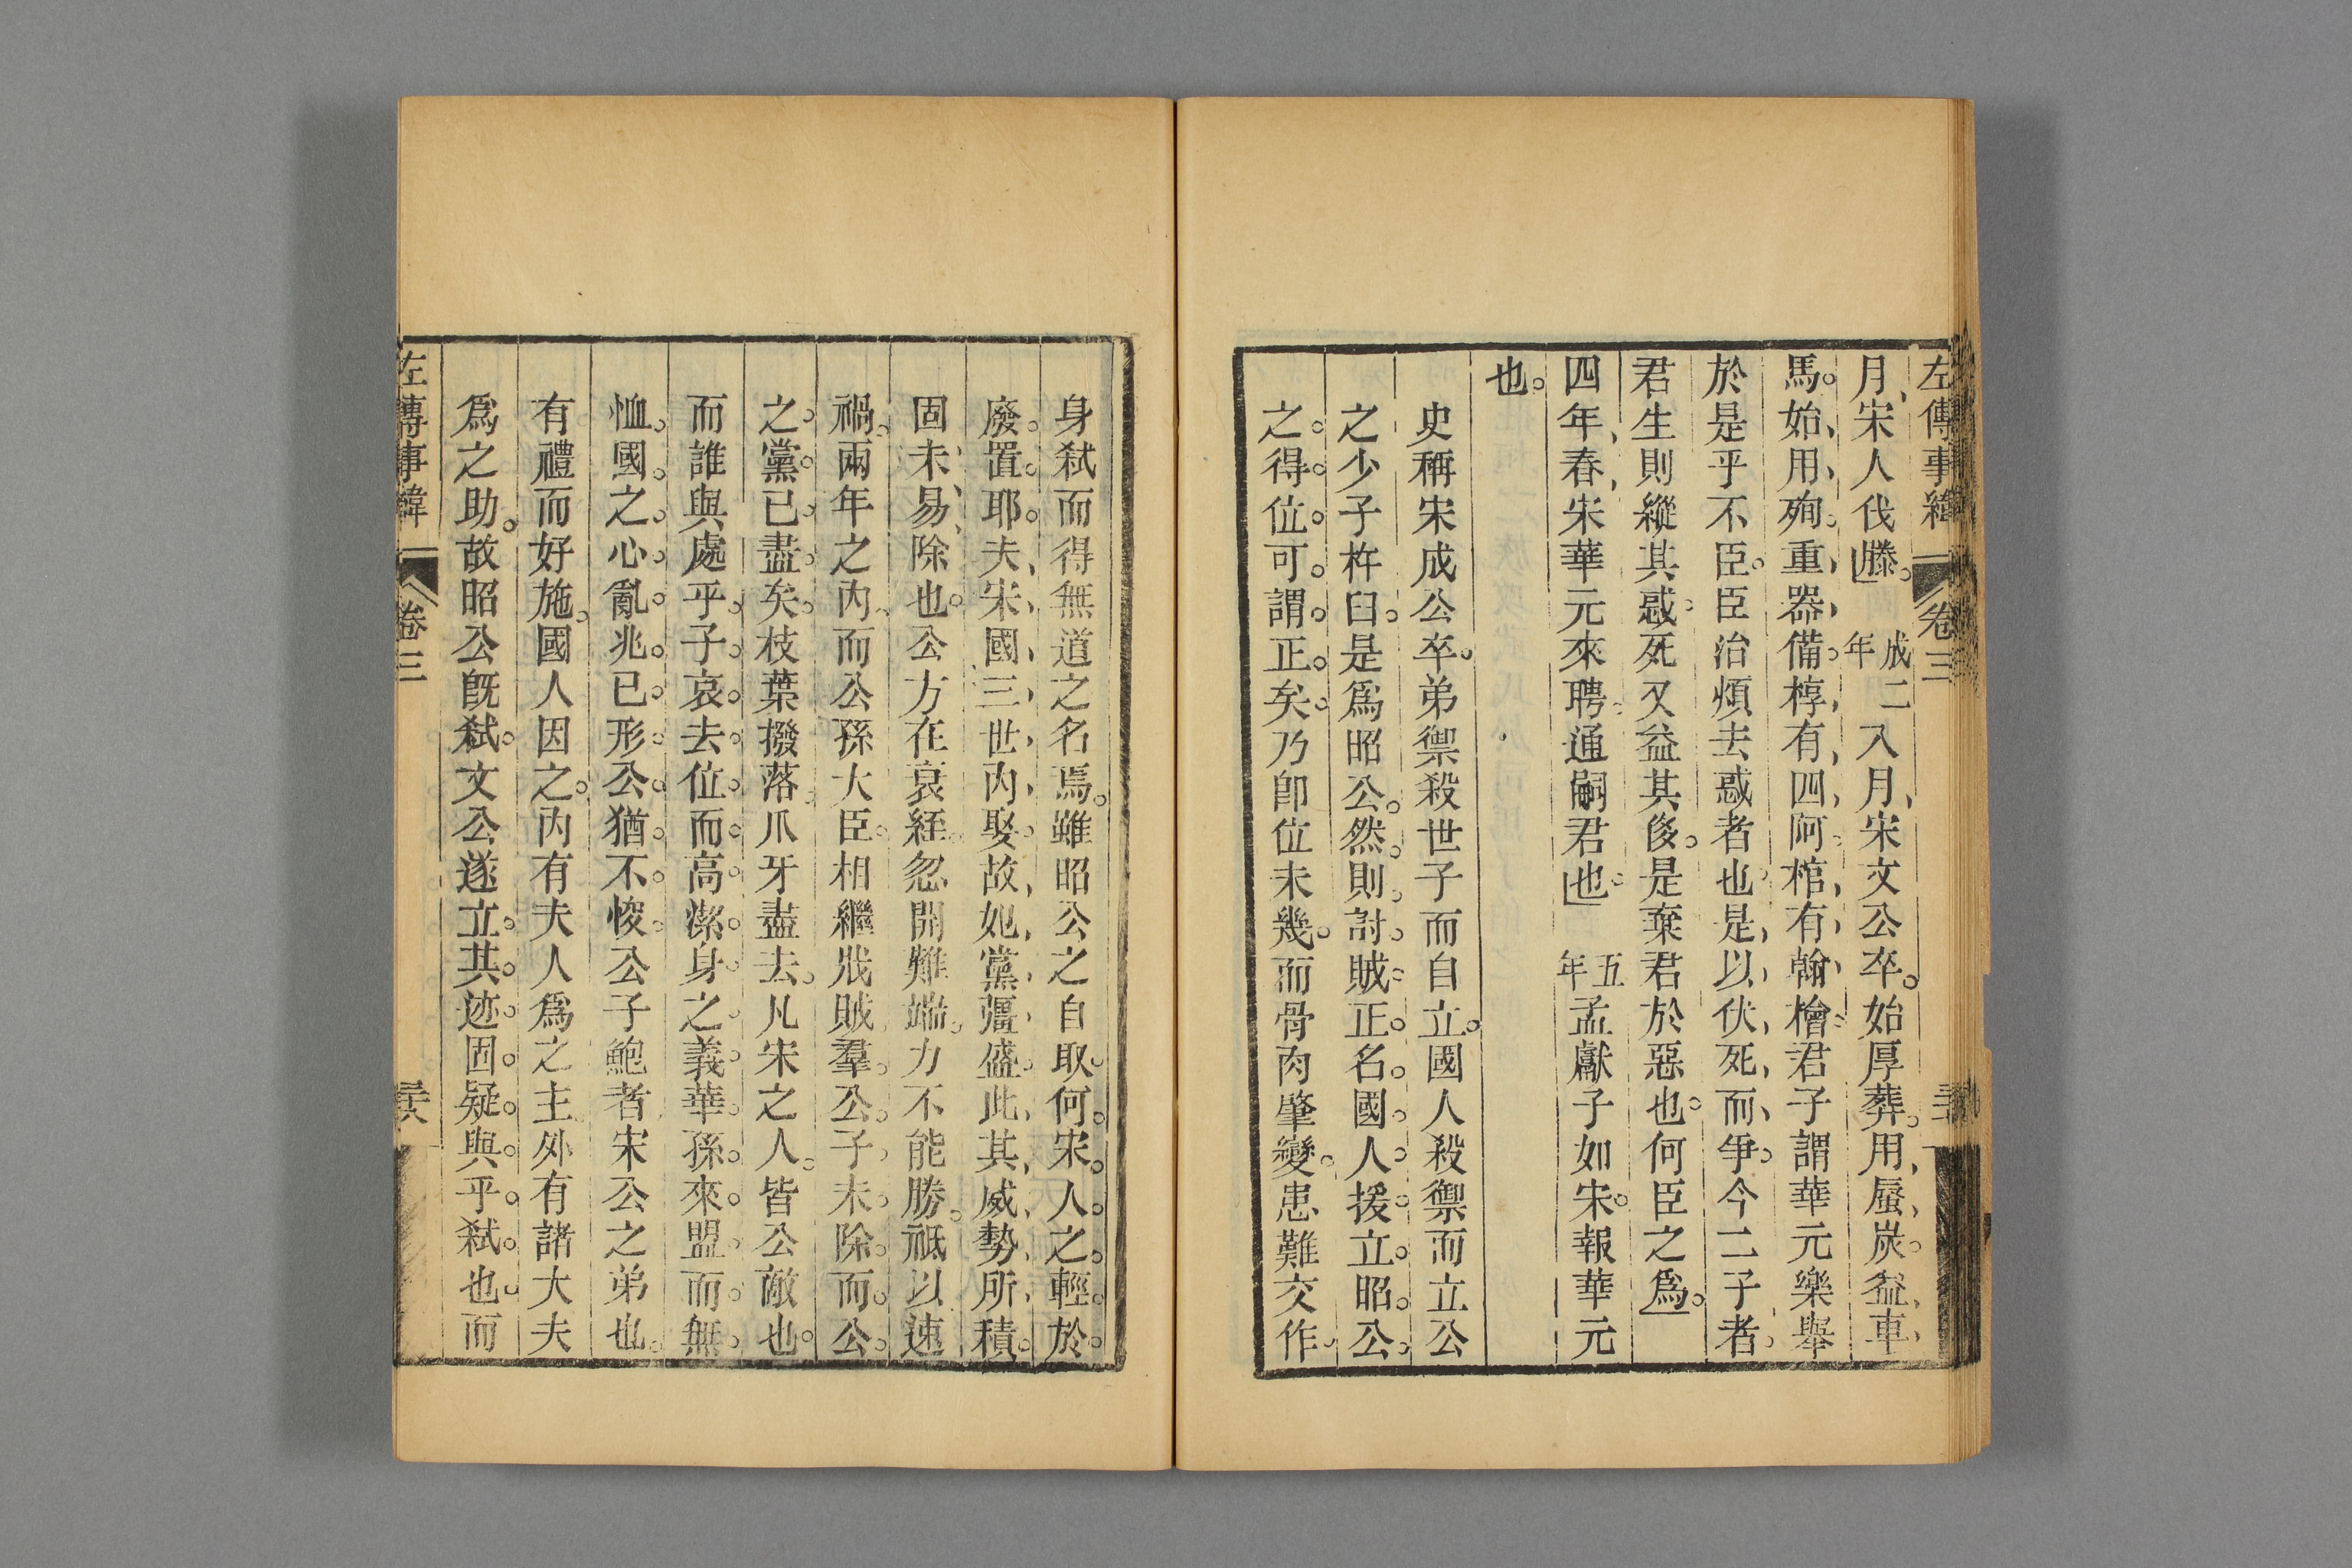 左傳事緯 卷三
月宋人伐滕。成二年八月宋文公卒。始厚葬。用蜃炭。益車
馬。始用殉。重器備。椁有四阿。棺有翰檜。君子謂華元樂舉
於是乎不臣。臣治煩去惑者也。是以伏死而爭。今二子者。
君生則縱其惑。死又益其侈。是棄君於惡也。何臣之爲。
四年春宋華元來聘。通嗣君也。五年孟獻子如宋。報華元
也。
史稱宋成公卒。弟禦殺世子而自立。國人殺禦而立公
之少子杵臼。是爲昭公。然則討賊正名。國人援立昭公。
之得位。可謂正矣。乃卽位未幾。而骨肉肇變。患難交作。
身弑而得無道之名焉。雖昭公之自取。何宋人之輕於
廢置耶。夫宋國三世內娶。故妃黨彊盛。此其威勢所積。
固未易除也。公方在衰絰。忽開難端。力不能勝。祗以速
禍。兩年之內。而公孫大臣。相繼戕賊。羣公子未除。而公
之黨已盡矣。枝葉撥落。爪牙盡去。凡宋之人。皆公敵也。
而誰與處乎。子哀去位而高潔身之義。華孫來盟而無
恤國之心。亂兆已形。公猶不悛。公子鮑者。宋公之弟也。
有禮而好施。國人因之。內有夫人爲之主。外有諸大夫
爲之助。故昭公旣弑。文公遂立。其迹固疑與乎弑也。而
左傳事緯 卷三 三六